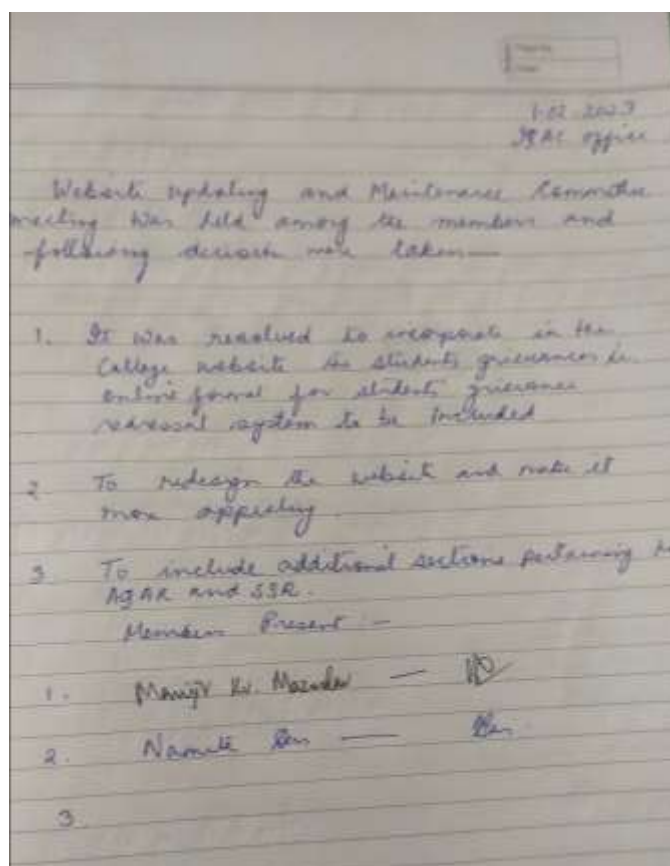 1.02.2023
IQAC office
Website updating and Maintenance Committee
meeting was held among the members and
following decision were taken—
1. It was resolved to incorporate in the
College website the students grievances i.e.
online format for students grievance
redressal system to be included
2 To redesign the website and make it
more appealing.
3 To include additional sections pertaining to
AQAR and SSR.
Members Present :-
1. Kr. Mazumdar —
2. —
3